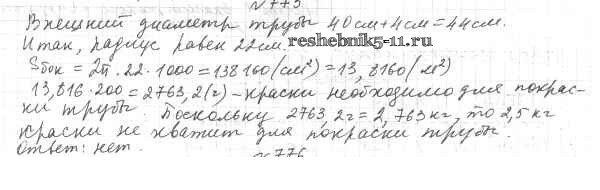 № 775
Внешний диаметр трубы 40 см + 4 см = 44 см.
Итак, радиус равен 22 см.
reshebnik5-11.ru
Sбок = 2π · 22 · 1000 = 138160 (см²) = 13,8160 (м²)
13,816 · 200 = 2763,2 (г) – краски необходимо для покрас-
ки трубы. Поскольку 2763,2г = 2,763 кг, то 2,5 кг
краски не хватит для покраски трубы.
Ответ: нет.
№ 776